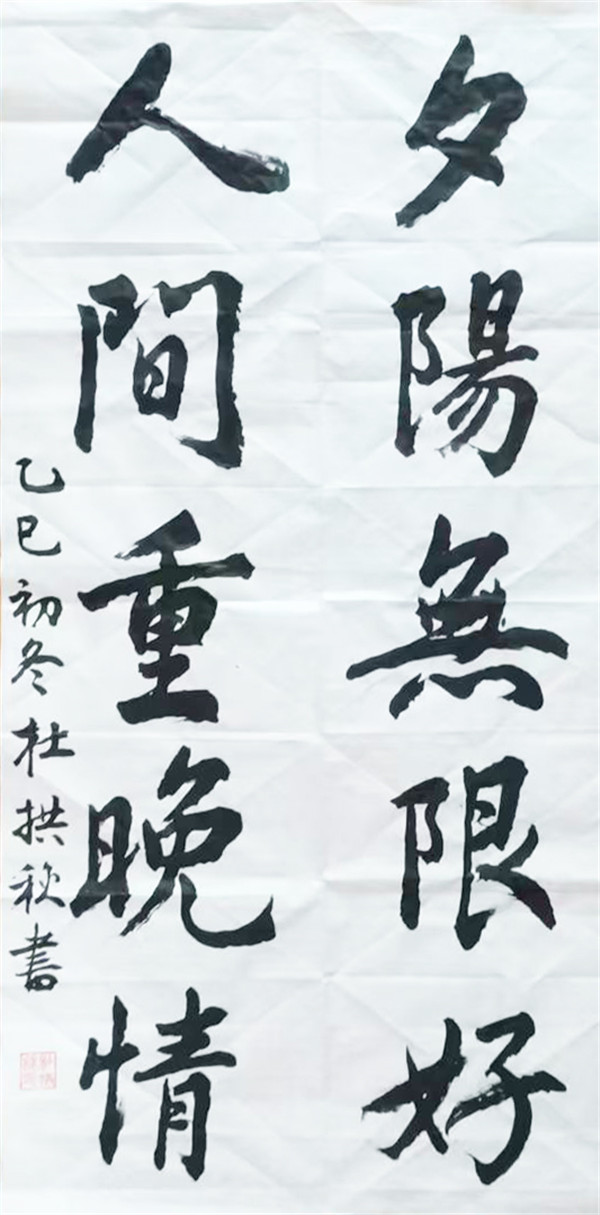 夕陽無限好
人間重晚情
乙巳初冬杜拱秋書